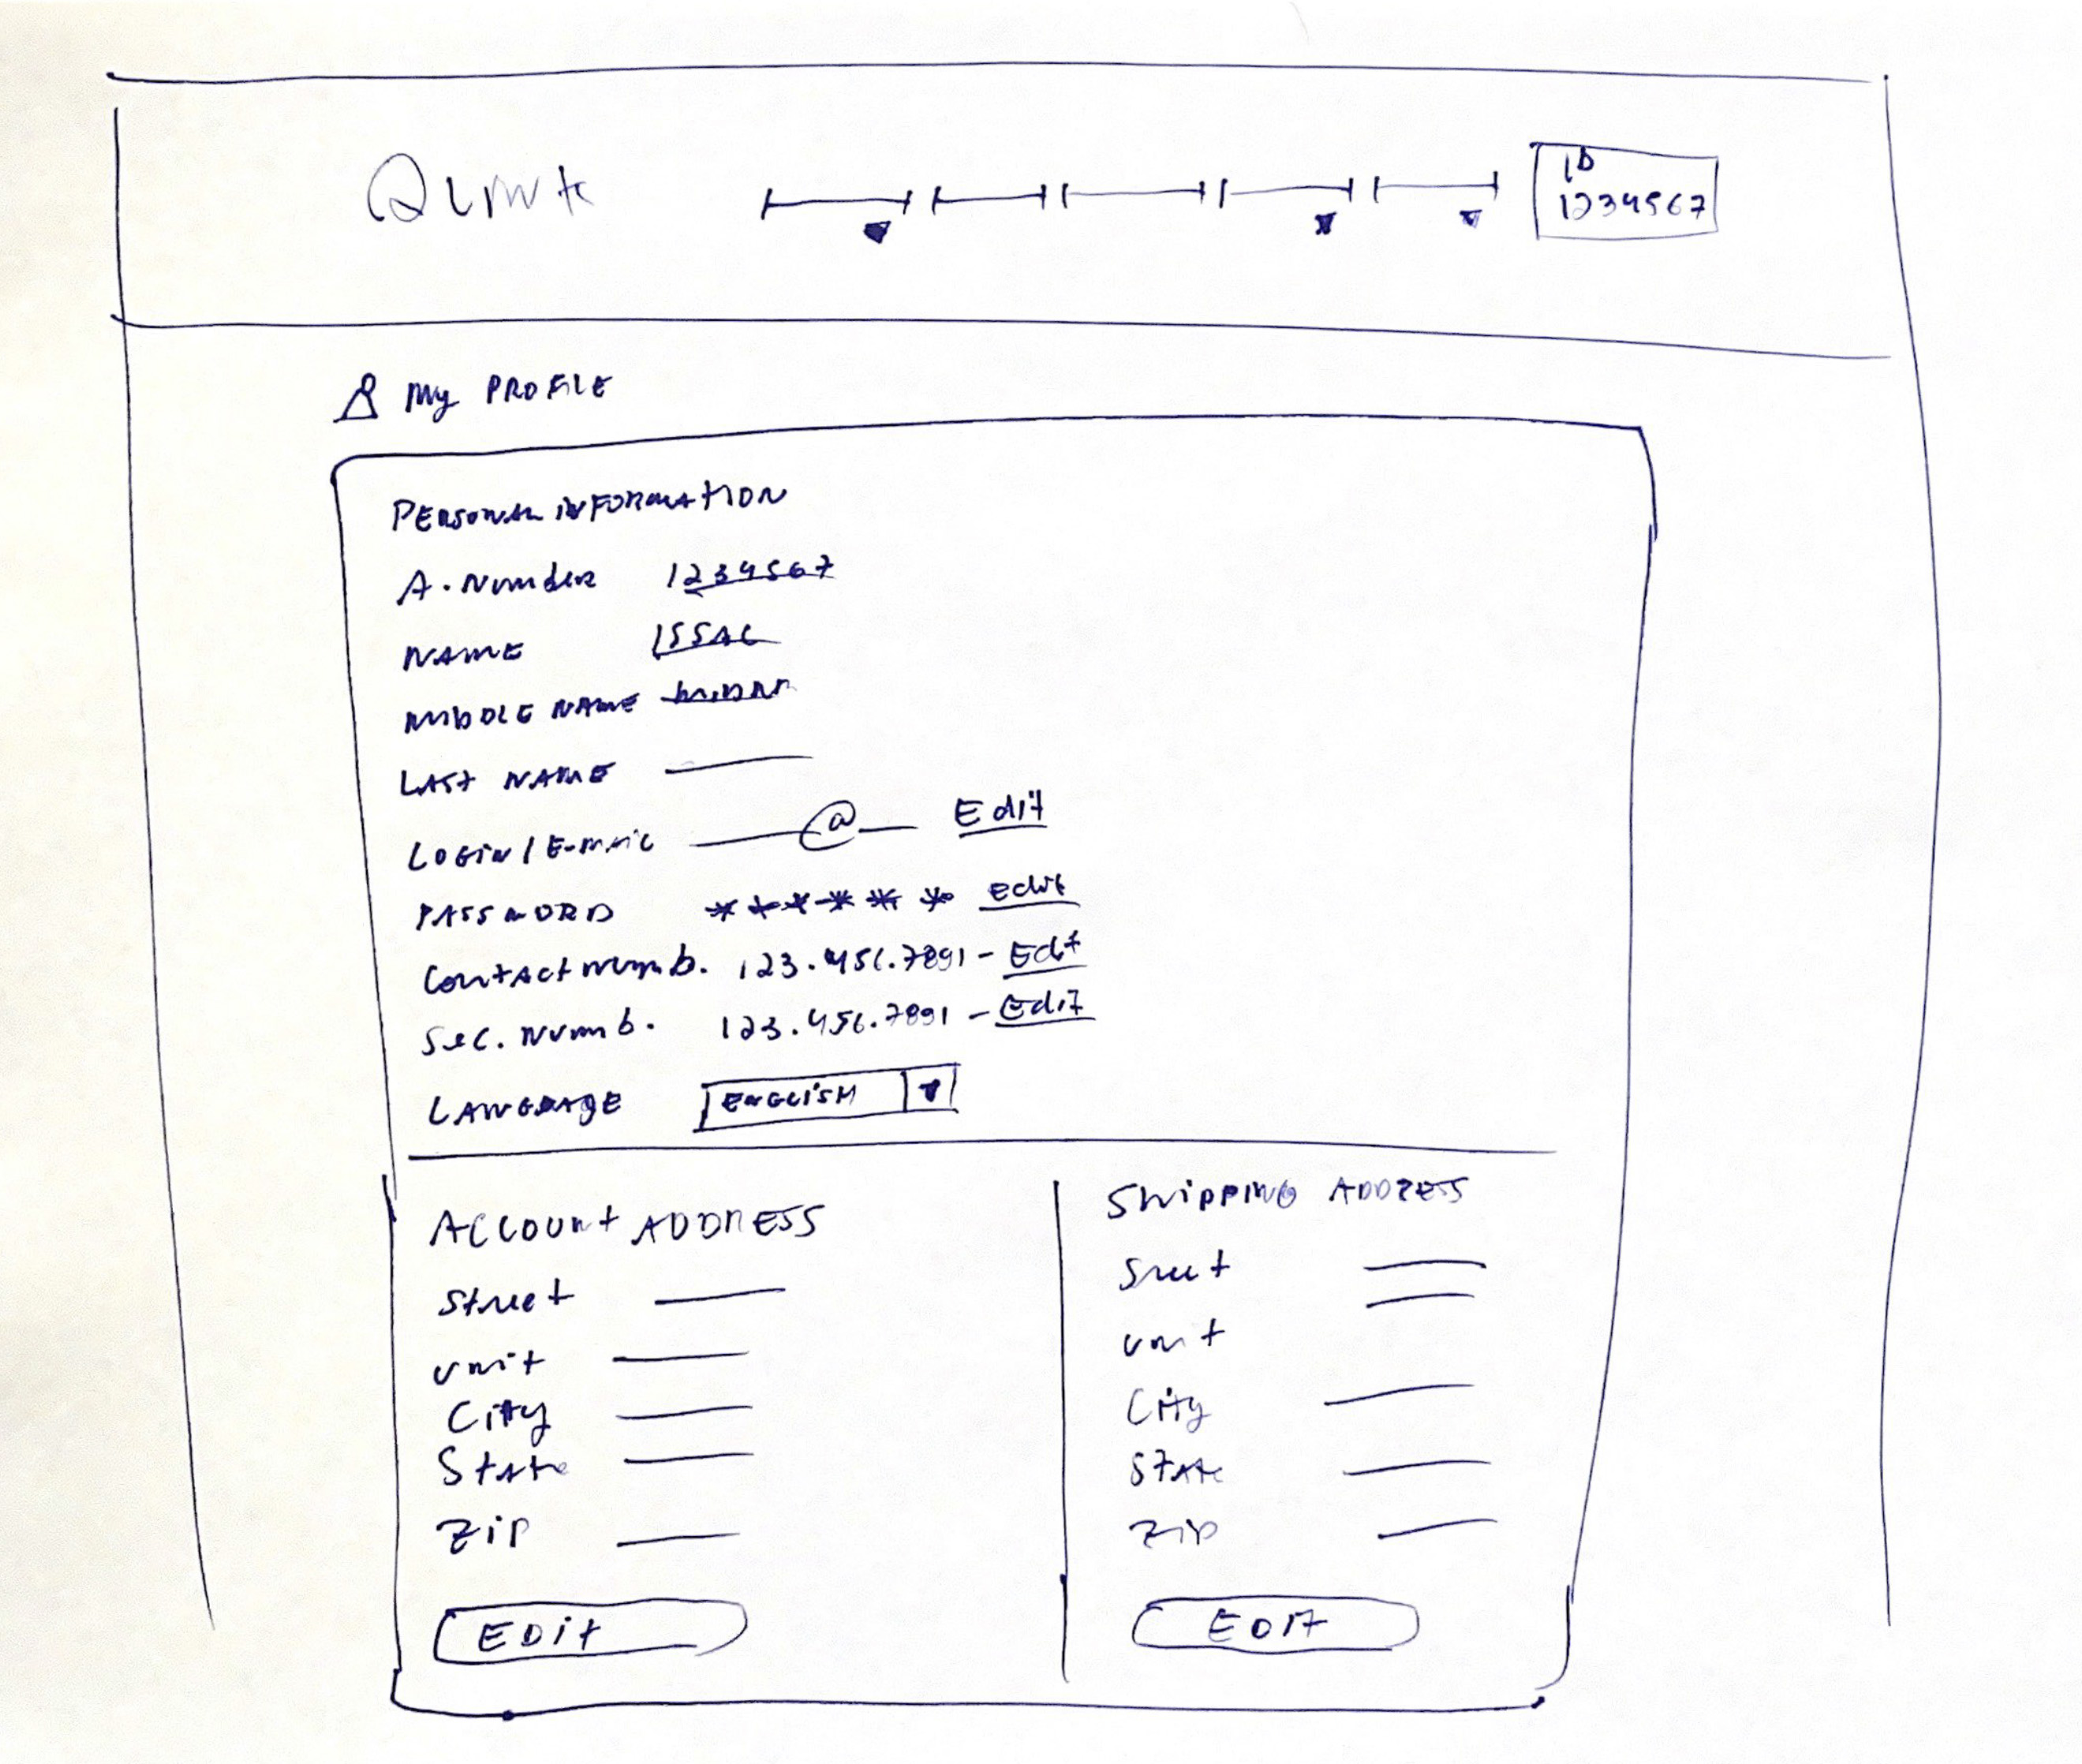 ID
1234567
My PROFILE
PERSONAL INFORMATION
A. Number 1234567
NAME ISSAC
MIDDLE NAME
LAST NAME
LOGIN / E-mail @ Edit
PASSWORD ****** edit
Contact Numb. 123.456.7891 - Edit
Sec. Numb. 123.456.7891 - Edit
LANGUAGE ENGLISH
ACCOUNT ADDRESS
Street
Unit
City
State
Zip
EDIT
SHIPPING ADDRESS
Sreet
Unit
City
State
Zip
EDIT